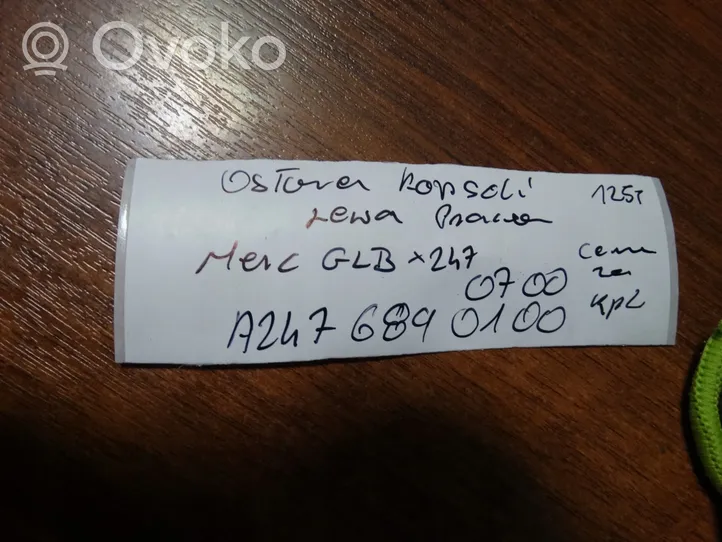 Ovoko
Osłona konsoli
Lewa Prawa
Merc GLB x247
0700
A247 689 0100
125
Cena
za
kpl